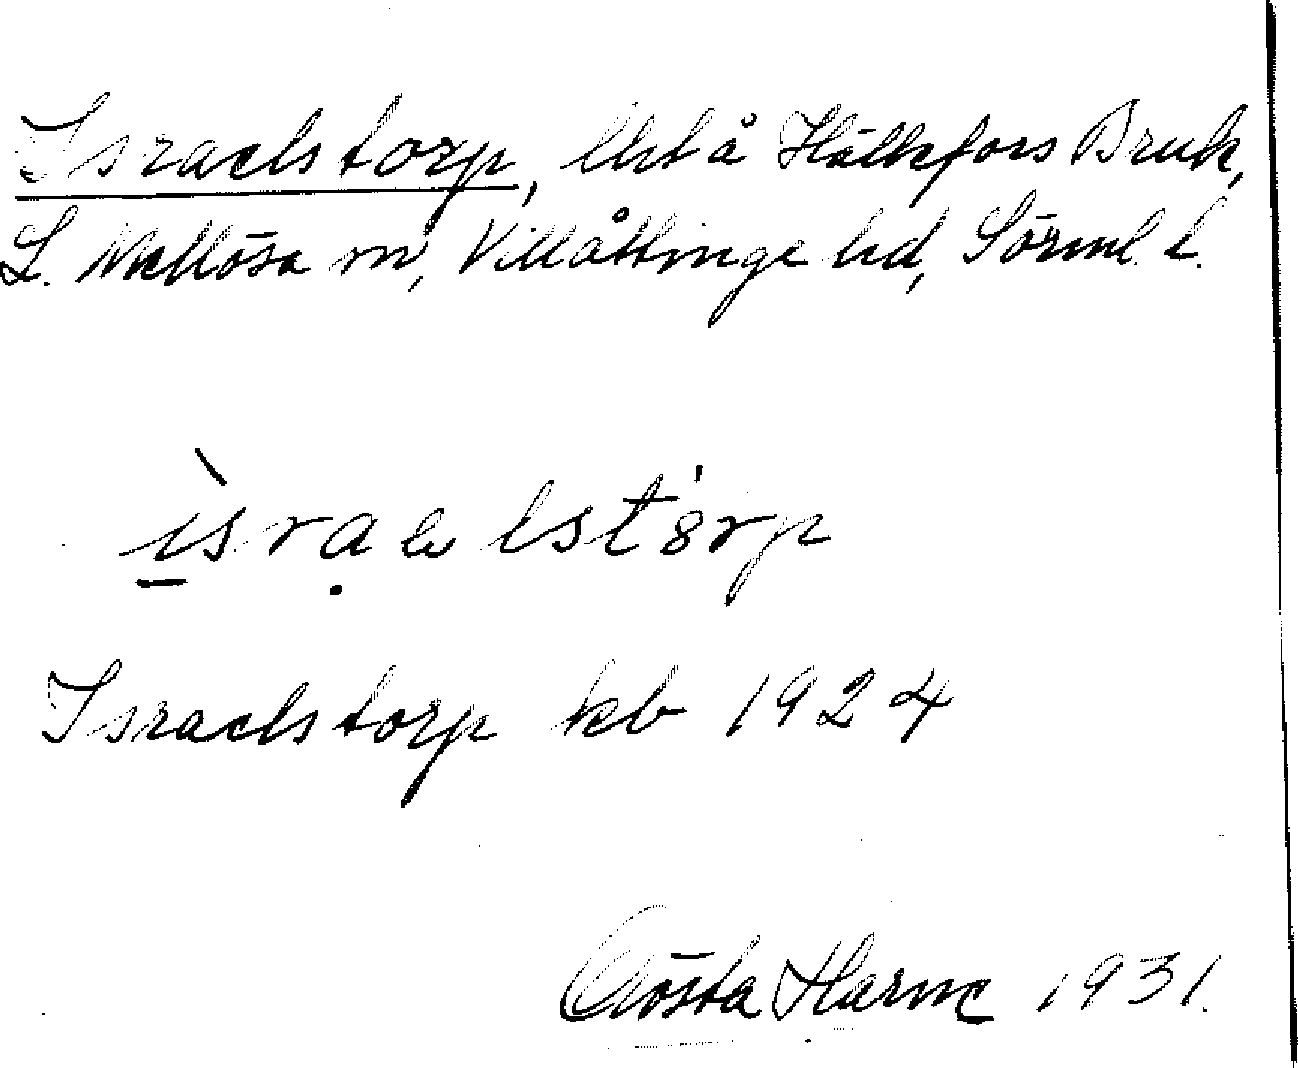 Israelstorp, lht å Hälleforss Bruk,
L. Mellösa sn, Villåttinge hd, Sörml. l.
ìsraelstòrp
Israelstorp kb 1924
Gösta Harne 1931.